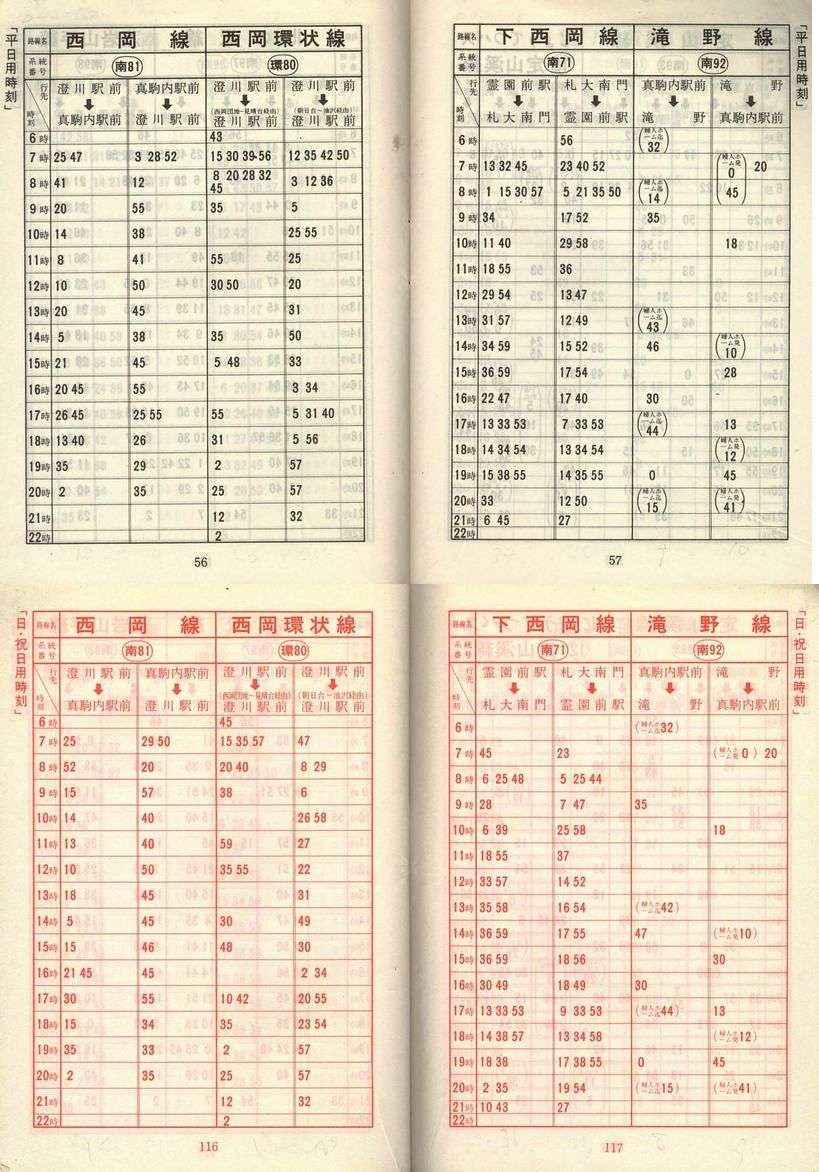 「平日用時刻」
路線名 西岡線 西岡環状線
系統番号 南81 環80
行先 時刻 澄川駅前 真駒内駅前 澄川駅前 澄川駅前
(西岡団地〜見晴台経由) (朝日台〜滝沢経由)
真駒内駅前 澄川駅前 澄川駅前 澄川駅前
6時 43
7時 25 47 3 28 52 15 30 39-56 12 35 42 50
8時 41 12 8 20 28 32 45 3 12 36
9時 20 55 35 5
10時 14 38 25 55
11時 8 41 55 25
12時 10 50 30 50 20
13時 20 45 31
14時 5 38 35 50
15時 21 45 5 48 33
16時 20 45 55 3 34
17時 26 45 25 55 55 5 31 40
18時 13 40 26 31 5 56
19時 35 29 2 57
20時 2 35 25 57
21時 12 32
22時 2
56
路線名 下西岡線 滝野線
系統番号 南71 南92
行先 時刻 霊園前駅 札大南門 真駒内駅前 滝野
札大南門 霊園前駅 滝野 真駒内駅前
6時 56 (婦人ホーム迄 32)
7時 13 32 45 23 40 52 (婦人ホーム発 0 20
8時 1 15 30 57 5 21 35 50 (婦人ホーム迄 14) 45)
9時 34 17 52 35
10時 11 40 29 58 18
11時 18 55 36
12時 29 54 13 47
13時 31 57 12 49 (婦人ホーム迄 43)
14時 34 59 15 52 46 (婦人ホーム発 10)
15時 36 59 17 54 28
16時 22 47 17 40 30
17時 13 33 53 7 33 58 (婦人ホーム迄 44) 13
18時 14 34 54 13 34 54 (婦人ホーム発 12)
19時 15 38 55 14 35 55 0 45
20時 33 12 50 (婦人ホーム迄 15) (婦人ホーム発 41)
21時 6 45 27
22時
57
「平日用時刻」
「日・祝日用時刻」
路線名 西岡線 西岡環状線
系統番号 南81 環80
行先 時刻 澄川駅前 真駒内駅前 澄川駅前 澄川駅前
(西岡団地〜見晴台経由) (朝日台〜滝沢経由)
真駒内駅前 澄川駅前 澄川駅前 澄川駅前
6時 45
7時 25 29 50 15 35 57 47
8時 52 20 20 40 8 29
9時 15 57 38 6
10時 14 40 26 58
11時 13 40 59 27
12時 10 50 35 55 22
13時 18 45 31
14時 5 45 30 49
15時 15 46 48 30
16時 21 45 45 2 34
17時 30 55 10 42 20 55
18時 15 34 35 23 54
19時 35 33 2 57
20時 2 35 25 57
21時 12 32
22時 2
116
路線名 下西岡線 滝野線
系統番号 南71 南92
行先 時刻 霊園前駅 札大南門 真駒内駅前 滝野
札大南門 霊園前駅 滝野 真駒内駅前
6時 (婦人ホーム迄32)
7時 45 23 (婦人ホーム発 0) 20
8時 6 25 48 5 25 44
9時 28 7 47 35
10時 6 39 25 58 18
11時 18 55 37
12時 33 57 14 52
13時 35 58 16 54 (婦人ホーム迄42)
14時 36 59 17 55 47 (婦人ホーム発10)
15時 36 59 18 56 30
16時 30 49 18 49 30
17時 13 33 53 9 33 53 (婦人ホーム迄44) 13
18時 14 38 57 13 34 58 (婦人ホーム発12)
19時 18 38 17 38 55 0 45
20時 2 35 19 54 (婦人ホーム迄15) (婦人ホーム発41)
21時 10 43 27
22時
117
「日・祝日用時刻」